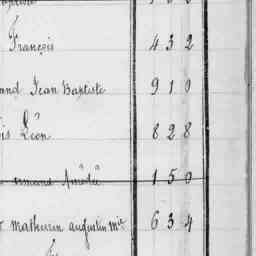 François 432
and Jean Baptiste 910
is Léon 828
Amédée 150
Mathurin Augustin Mie 634